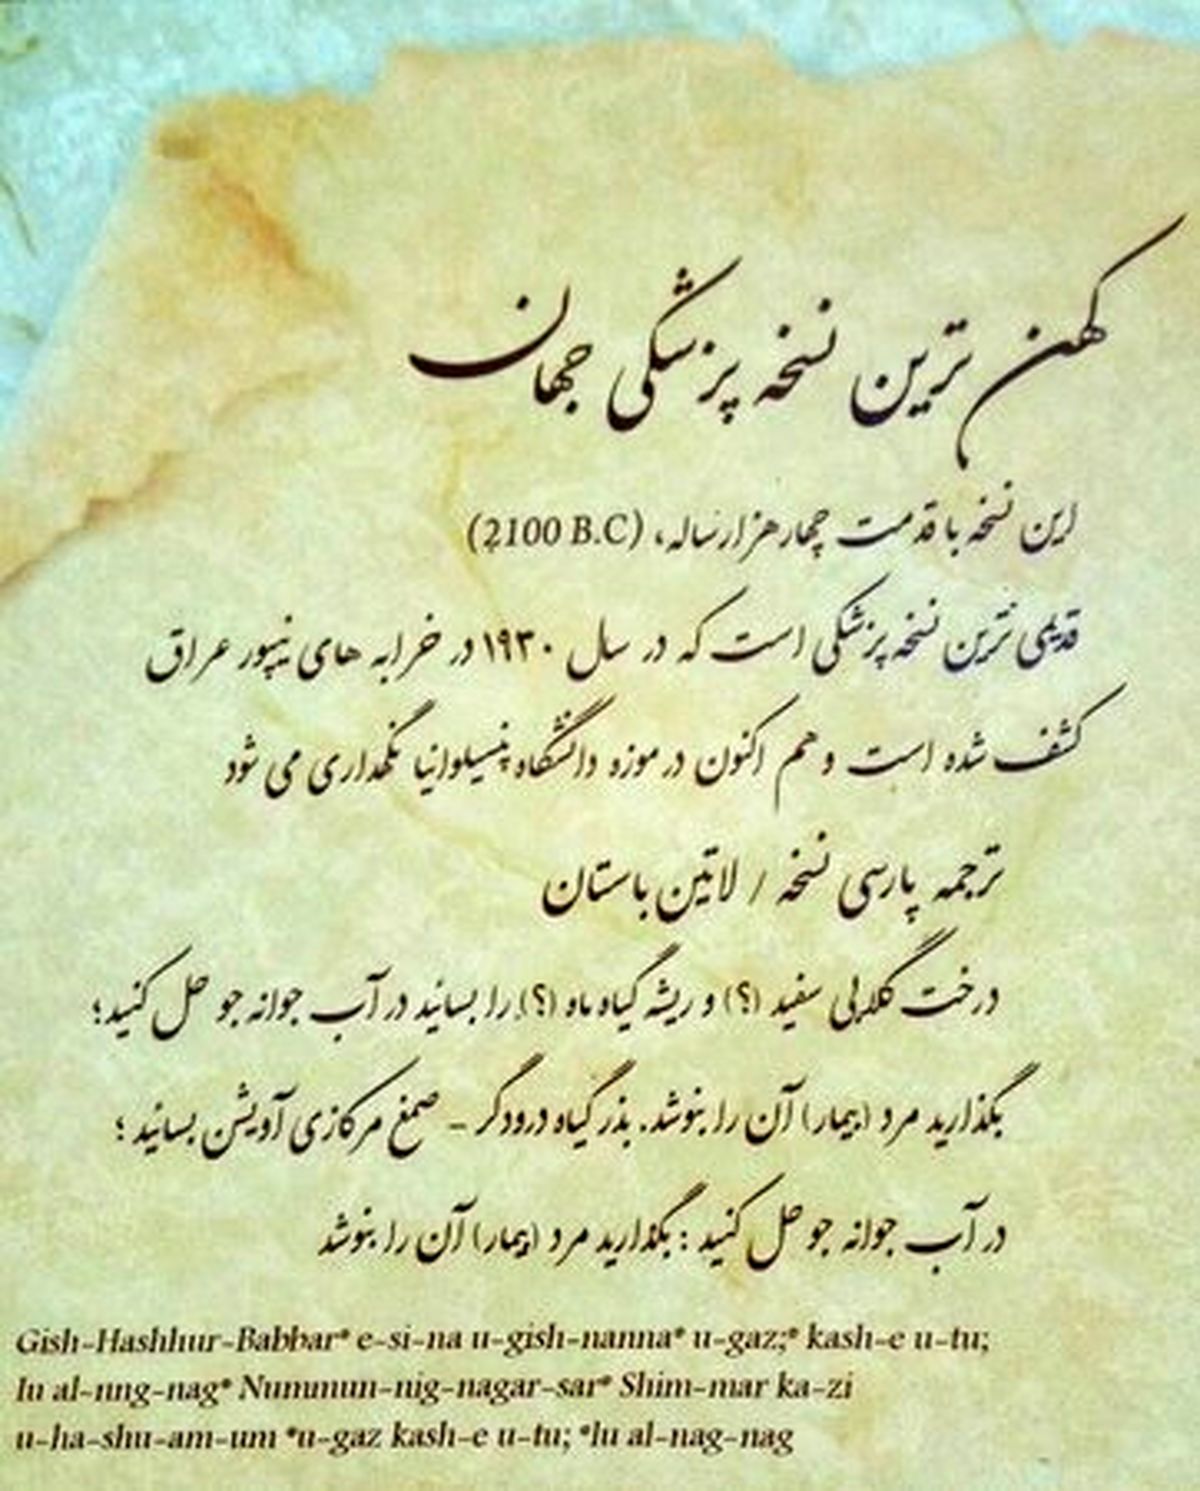 کهن ترین نسخه پزشکی جهان
این نسخه با قدمت چهار هزار ساله، (2100 B.C)
قدیمی ترین نسخه پزشکی است که در سال ۱۹۳۰ در خرابه های نیپور عراق
کشف شده است و هم اکنون در موزه دانشگاه پنسیلوانیا نگهداری می شود
ترجمه پارسی نسخه / لاتین باستان
درخت گلابی سفید (؟) و ریشه گیاه ماه (؟) را بسائید در آب جوانه جو حل کنید؛
بگذارید مرد (بیمار) آن را بنوشد. بذر گیاه درودگر - صمغ مرکازی آویشن بسائید؛
در آب جوانه جو حل کنید: بگذارید مرد (بیمار) آن را بنوشد
Gish-Hashhur-Babbar* e-si-na u-gish-nanna* u-gaz;* kash-e u-tu;
lu al-nng-nag* Nummun-nig-nagar-sar* Shim-mar ka-zi
u-ha-shu-am-um *u-gaz kash-e u-tu; *lu al-nag-nag